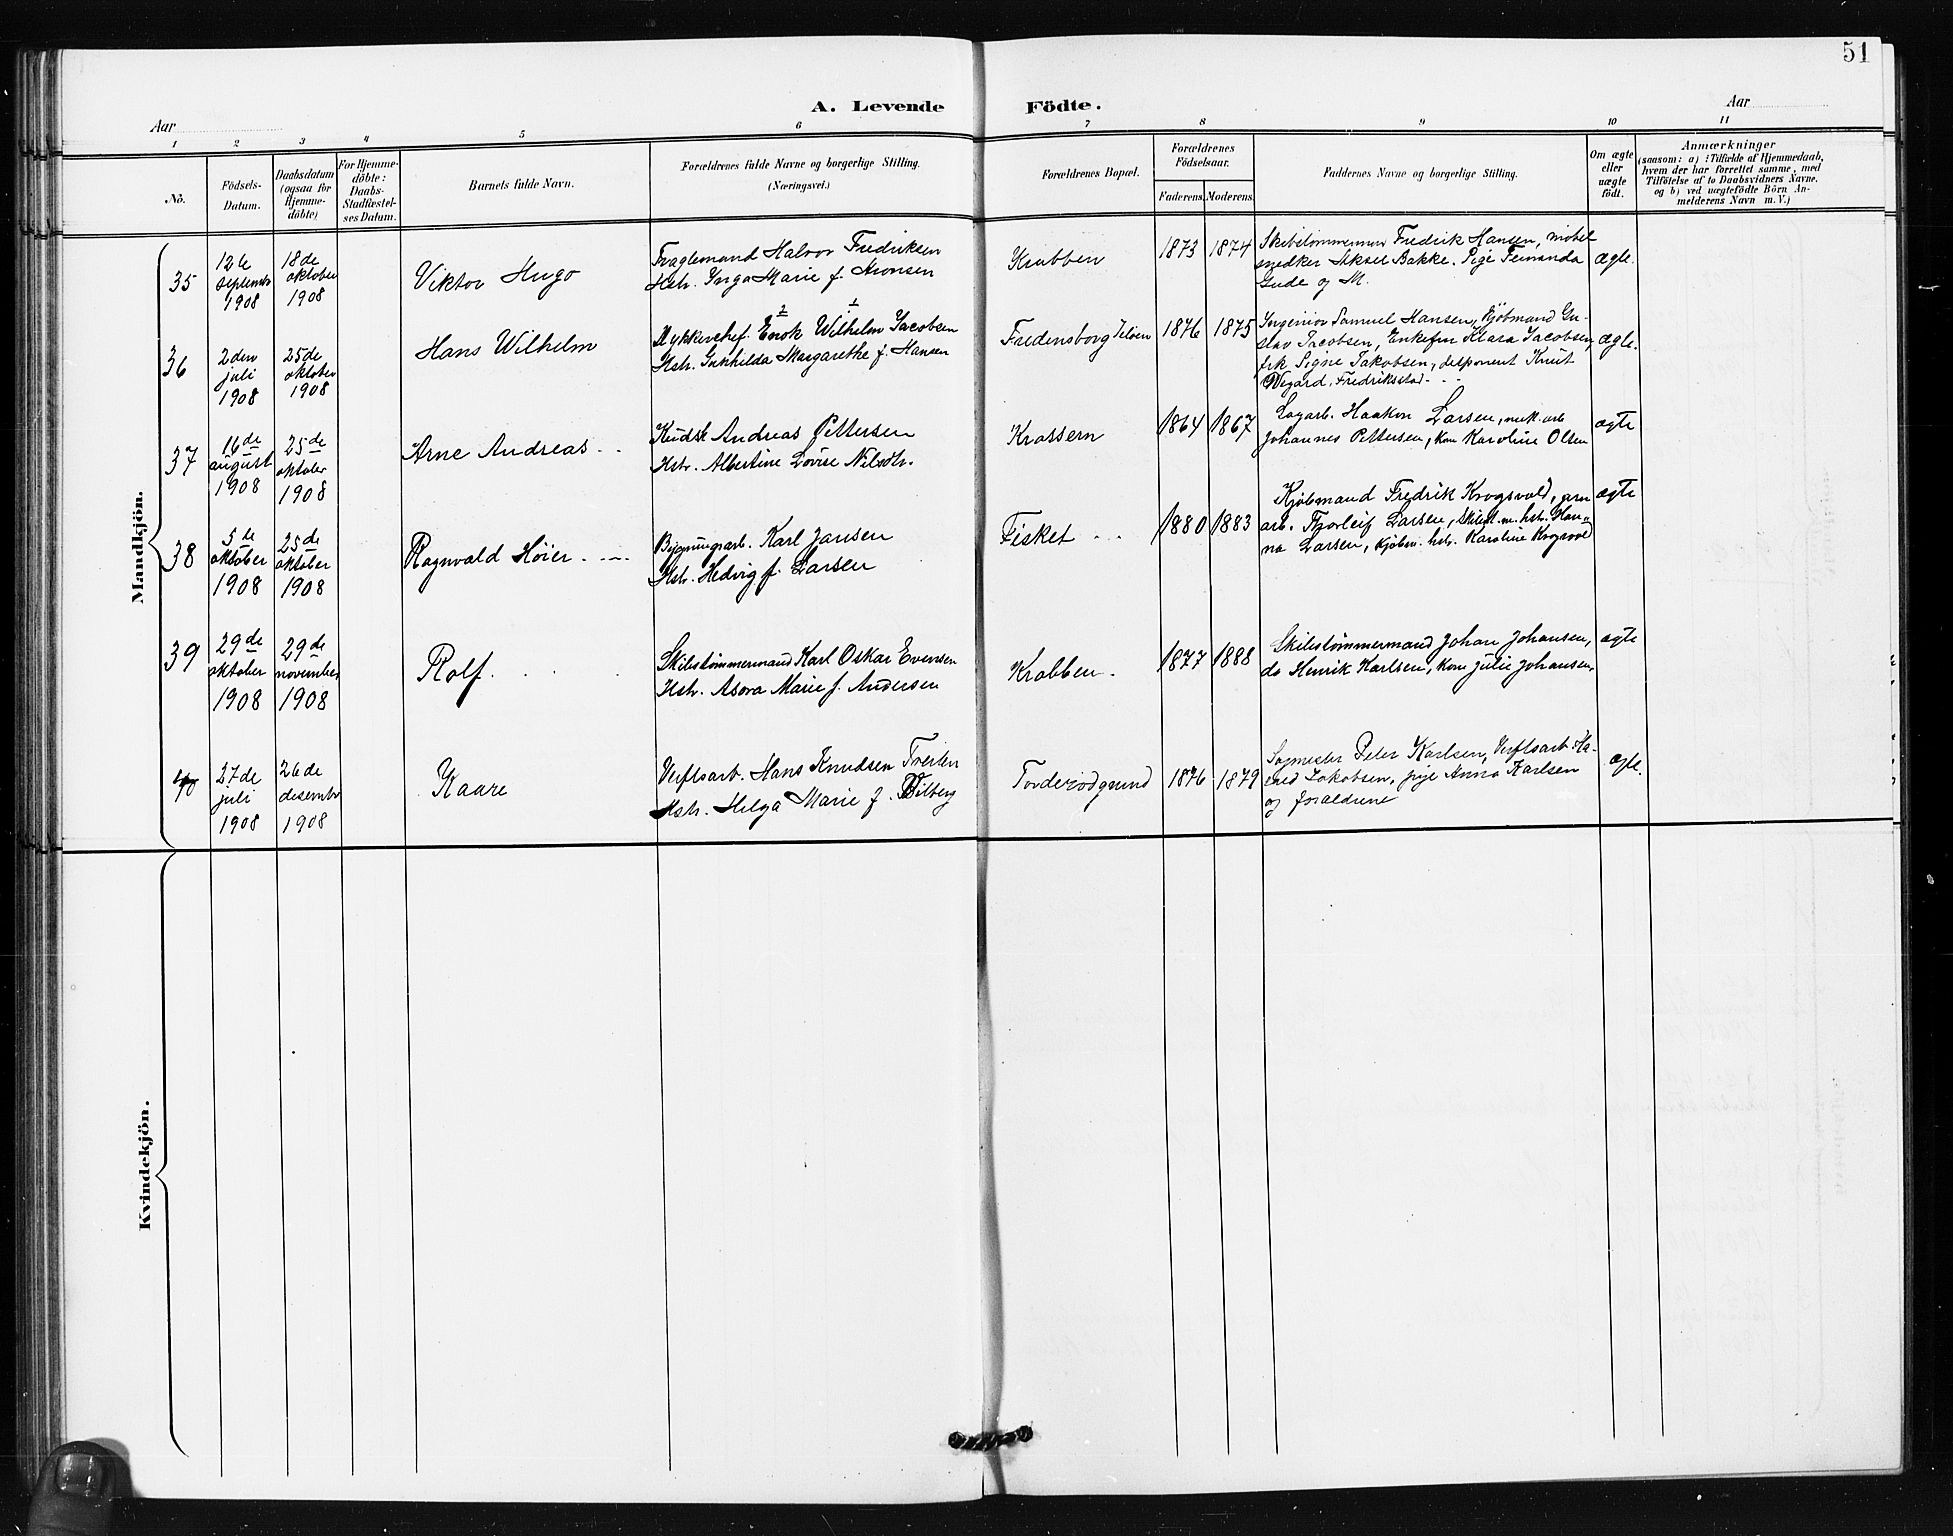 51
A. Levende Födte.
Aar
Aar
1 2 3 4 5 6 7 8 9 10 11
No.
Födsels-
Datum.
Daabsdatum
(ogsaa for
Hjemme-
döbte)
For Hjemme-
döbte:
Daabs-
Stadfæstel-
ses Datum.
Barnets fulde Navn.
Forældrenes fulde Navne og borgerlige Stilling.
(Næringsvei.)
Forældrenes Bopæl.
Forældrenes
Födselsaar.
Faderens. Moderens.
Faddernes Navne og borgerlige Stilling.
Om ægte
eller
uægte
födt.
Anmærkninger
(saasom: a) i Tilfælde af Hjemmedaab,
hvem der har forrettet samme, med
Tilföielse af to Daabsvidners Navne.
og b) ved uægtefödte Börn An-
melderens Navn m. V.)
Mandkjön.
35
12te
septembr
1908
18de
oktober
1908
Viktor Hugo
Halvor Fredriksen
Hstr. Inga Marie f. Aronsen
Krabben
1873 1874
Fredrik Hansen, möbel
snedker Aksel Bakke. Pige Fernanda
Gude og M.
ægte.
36
2den
juli
1908
25de
oktober
1908
Hans Wilhelm
2 1
Dykkerchef. Enok Wilhelm Jacobsen
Hstr. Gunhilda Margarethe f. Hansen
Fredensborg
1876 1875
Ingeniör Samuel Hansen, Kjöbmand Gu-
stav Jacobsen, Enkefru Klara Jacobsen,
frk Signe Jakobsen, disponent Knut
Wegard, Fredriksstad
ægte.
37
16de
august
1908
25de
oktober
1908
Arne Andreas
Kudsk Andreas Pettersen
Hstr. Albertine Lovise Nilsdtr.
Krossern
1864 1867
Sagarb. Haakon Larsen, mek. arb
Johannes Pettersen, Kone Karoline Olsen
ægte
38
5te
oktober
1908
25de
oktober
1908
Ragnvald Höier
Bygningsarb. Karl Jansen
Hstr. Hedvig f. Larsen
Fisket
1880 1883
Kjöbmand Fredrik Krogsvold,
arb. Thorleif Larsen, hstr. Han-
na Larsen, Kjöbm. hstr. Karoline Krogsvold
ægte
39
29de
oktober
1908
29de
november
1908
Rolf
Skibstömmermand Karl Oskar Evensen
Hstr. Asora Marie f. Andersen
Krabben.
1877 1888
Skibstömmermand Johan Johansen,
do Henrik Karlsen, Kone Julie Johansen,
ægte
40
27de
juli
1908
26de
desembr
1908
Kaare
Verftsarb. Hans Knudsen Tveiten
Hstr. Helga Marie f. Wilberg
1876 1879
Sagmester Peter Karlsen, Verftsarb.
Jakobsen, pige Anna Karlsen
og forældrene
ægte.
Kvindekjön.